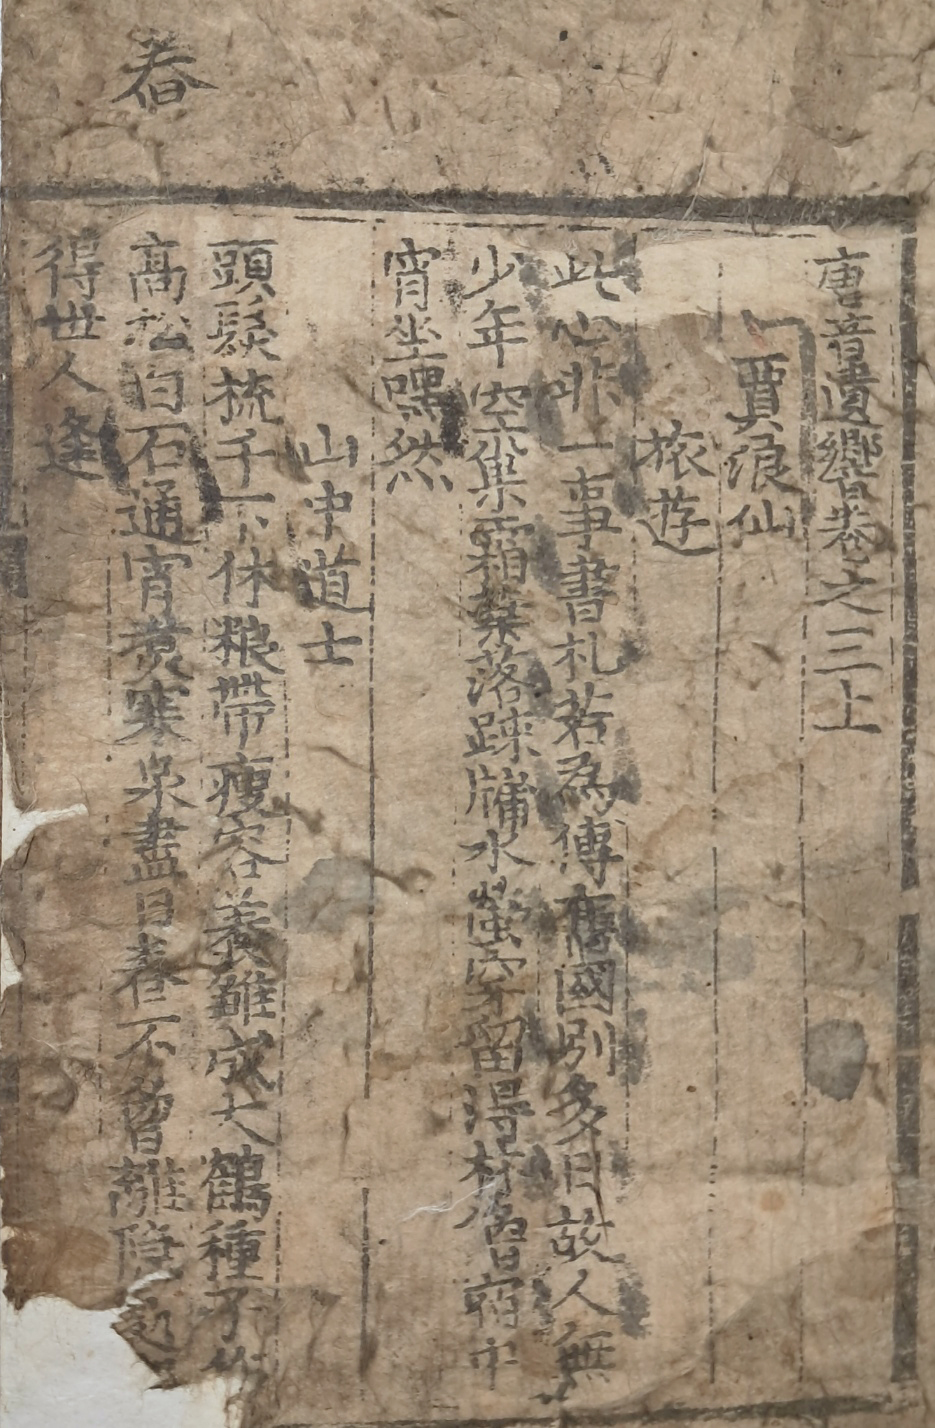 舂
唐音遺響卷之三上
賈浪仙
旅遊
此心非一事書札若為傳舊國別多日故人無
少年空巢霜葉落踈牖水螢穿留得林僧宿中
宵坐嘿然
山中道士
頭髮梳千下休粮帶瘦容養雛成大鶴種子作
高松白石通宵煮寒泉盡日舂不曾離隱處
得世人逢